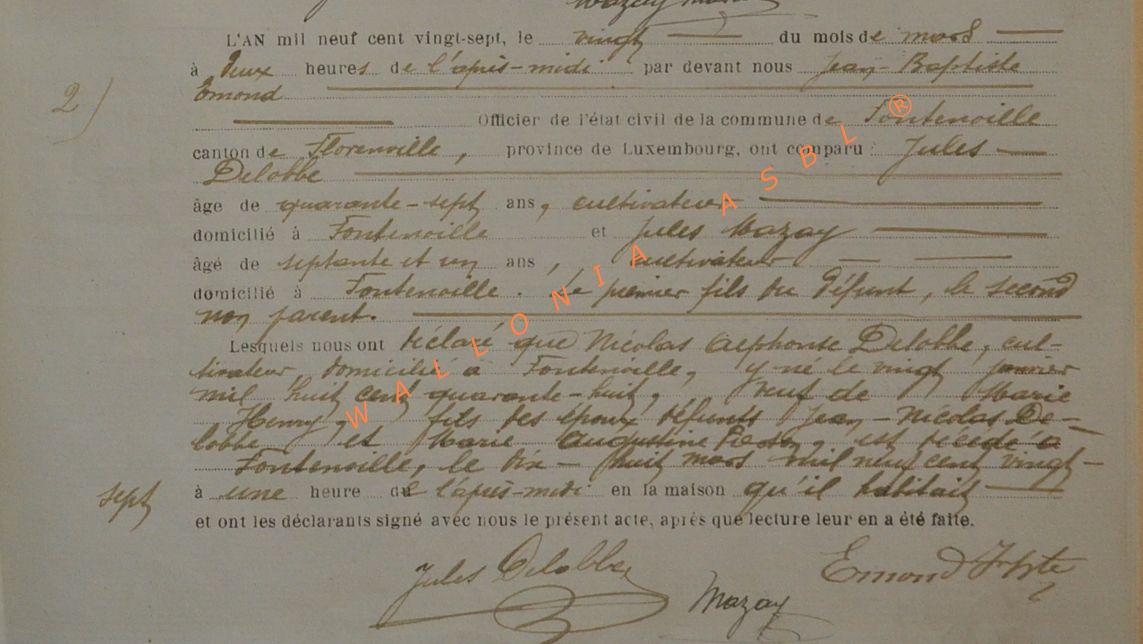 L'AN mil neuf cent vingt-sept, le vingt du mois de mars
à deux heures de l'après-midi par devant nous Jean-Baptiste
Emond
2)
Officier de l'état civil de la commune de Fontenoille
canton de Florenville, province de Luxembourg, ont comparu : Jules
Delobbe
âge de quarante-sept ans, cultivateur
domicilié à Fontenoille et Jules Mazay
âgé de septante et un ans, cultivateur
domicilié à Fontenoille. Le premier fils du défunt, le second
non parent.
Lesquels nous ont déclaré que Nicolas Alphonse Delobbe, cul-
tivateur, domicilié à Fontenoille, y né le vingt janvier
mil huit cent quarante-huit, veuf de Marie
Henry, fils des époux défunts Jean-Nicolas De-
lobbe et Marie Augustine est décédé à
Fontenoille, le dix-huit mars mil neuf cent vingt-
sept à une heure de l'après-midi en la maison qu'il habitait
et ont les déclarants signé avec nous le présent acte, après que lecture leur en a été faite.
Jules Delobbe Mazay Emond
WALLONIA ASBL ®